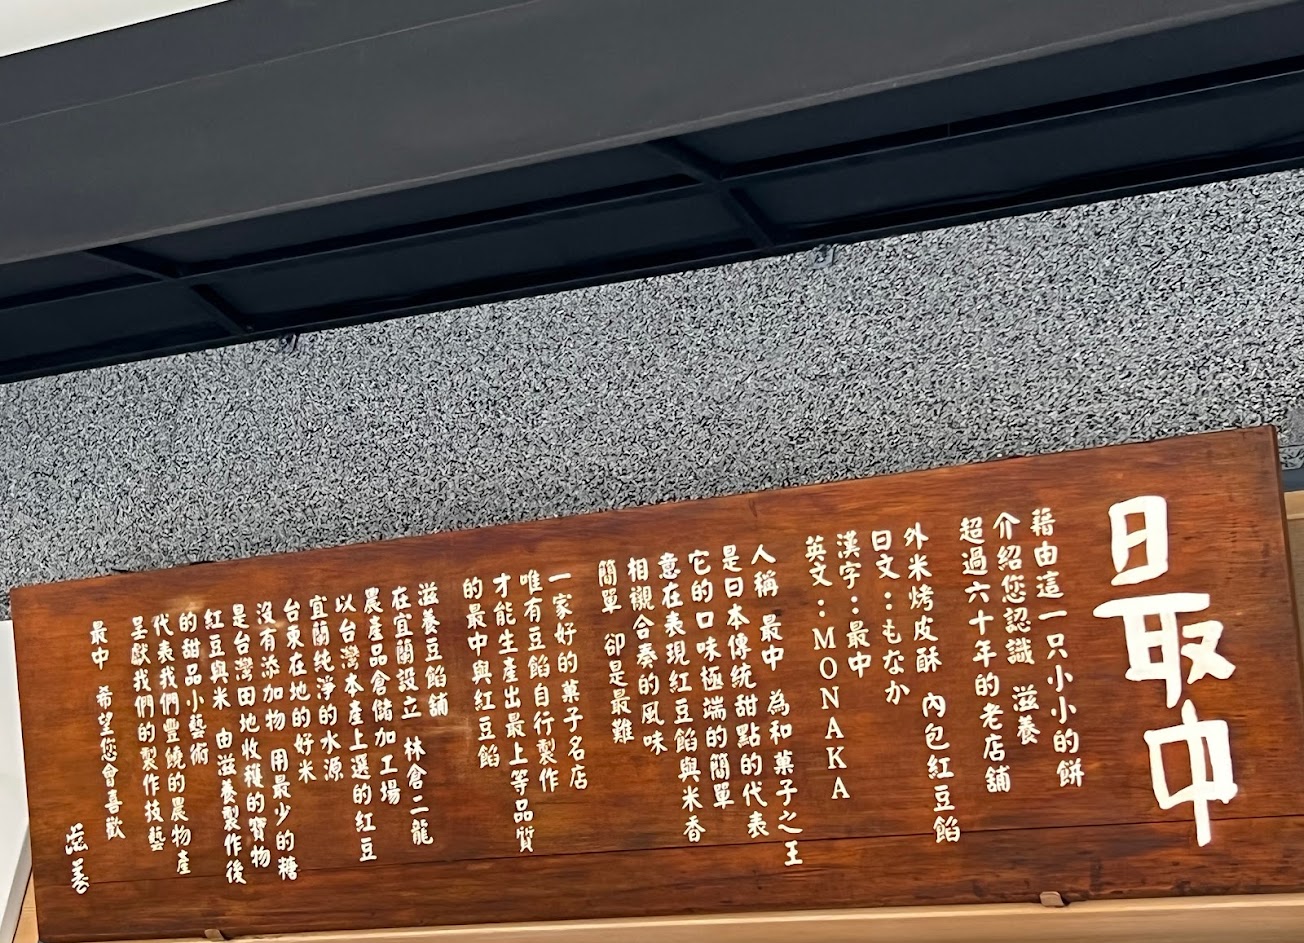 最中
藉由這一只小小的餅
介紹您認識 滋養
超過六十年的老店舖
外米烤皮酥 內包紅豆餡
日文：もなか
漢字：最中
英文：MONAKA
人稱 最中 為和菓子之王
是日本傳統甜點的代表
它的口味極端的簡單
意在表現紅豆餡與米香
相襯合奏的風味
簡單 卻是最難
一家好的菓子名店
唯有豆餡自行製作
才能生產出最上等品質
的最中與紅豆餡
滋養豆餡舖
在宜蘭設立 林倉二龍
農產品倉儲加工場
以台灣本產上選的紅豆
宜蘭純淨的水源
台東在地的好米
沒有添加物 用最少的糖
是台灣田地收穫的寶物
紅豆與米 由滋養製作後
的甜品小藝術
代表我們豐饒的農物產
呈獻我們的製作技藝
最中 希望您會喜歡
滋養